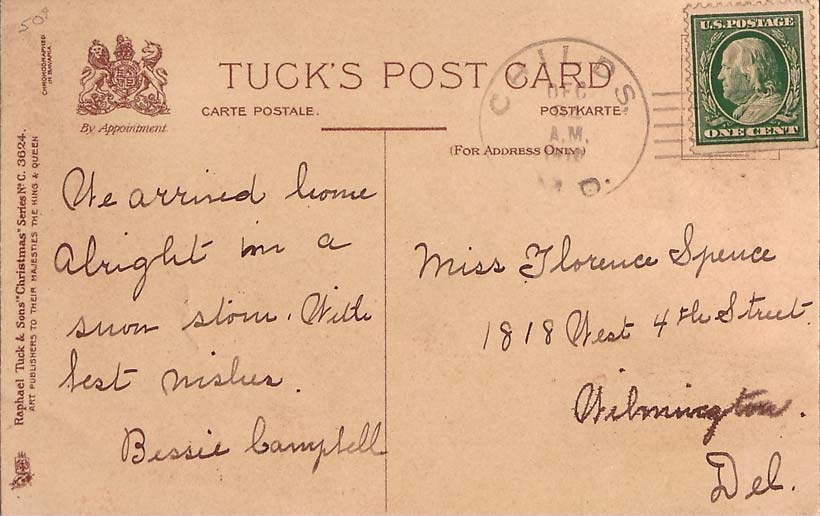 50¢
CHROMOGRAPHED
IN BAVARIA
By Appointment.
TUCK'S POST CARD
CARTE POSTALE.
POSTKARTE
(FOR ADDRESS ONLY.)
CHILDS.
DEC
A.M.
D.
U.S. POSTAGE
ONE CENT
Raphael Tuck & Sons' "Christmas" Series Nº C. 3624.
ART PUBLISHERS TO THEIR MAJESTIES THE KING & QUEEN
We arrived home
alright in a
snow storm. With
best wishes.
Bessie Campbell
Miss Florence Spence
1818 West 4th Street.
Wilmington.
Del.